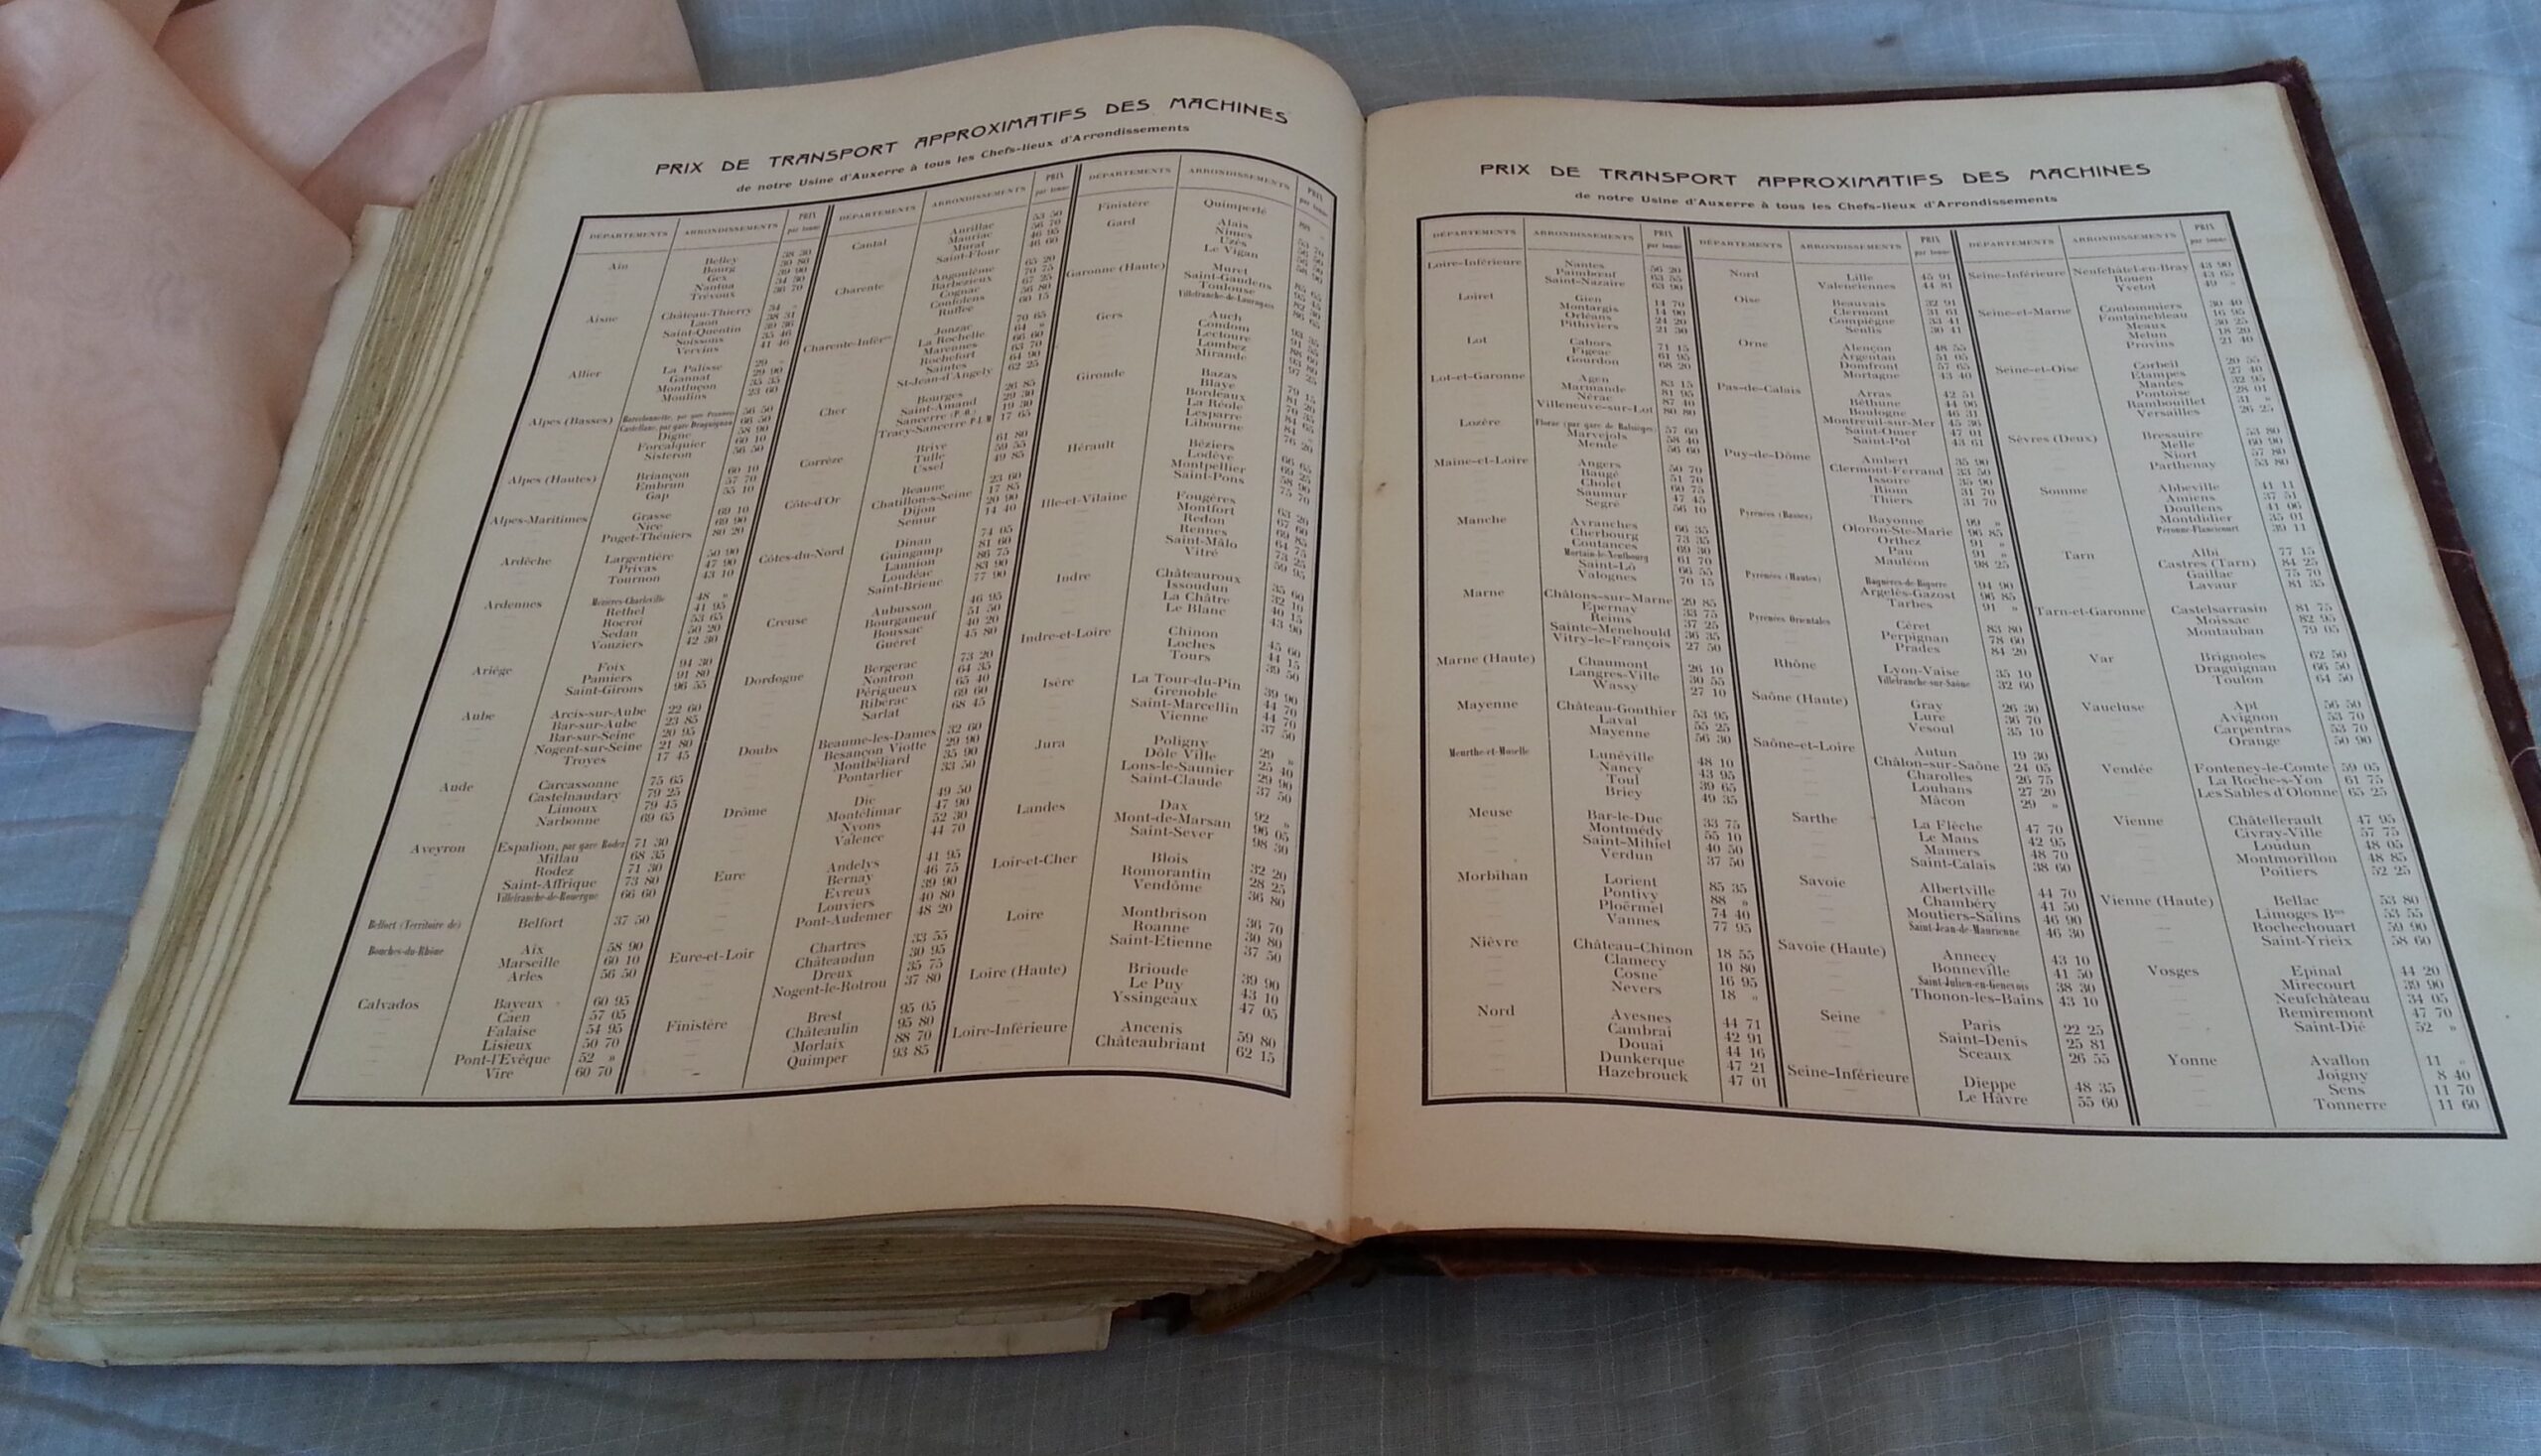 PRIX DE TRANSPORT APPROXIMATIFS DES MACHINES
de notre Usine d'Auxerre à tous les Chefs-lieux d'Arrondissements
DÉPARTEMENTS ARRONDISSEMENTS PRIX par tonne
Ain Belley 38 30
Bourg 30 80
Gex 39 90
Nantua 34 30
Trévoux 36 70
Aisne Château-Thierry 34 »
Laon 38 31
Saint-Quentin 39 36
Soissons 35 46
Vervins 41 46
Allier La Palisse 29 »
Gannat 29 90
Montluçon 35 35
Moulins 23 60
Alpes (Basses) Barcelonnette, par gare Prunières 56 50
Castellane, par gare Draguignan 66 50
Digne 58 90
Forcalquier 60 10
Sisteron 56 50
Alpes (Hautes) Briançon 60 10
Embrun 57 70
Gap 55 10
Alpes-Maritimes Grasse 69 10
Nice 69 90
Puget-Théniers 80 20
Ardèche Largentière 50 90
Privas 47 90
Tournon 43 10
Ardennes Mézières-Charleville 48 »
Rethel 41 95
Rocroi 53 65
Sedan 50 20
Vouziers 42 30
Ariége Foix 94 30
Pamiers 91 80
Saint-Girons 96 55
Aube Arcis-sur-Aube 22 60
Bar-sur-Aube 23 85
Bar-sur-Seine 20 95
Nogent-sur-Seine 21 80
Troyes 17 45
Aude Carcassonne 75 65
Castelnaudary 79 25
Limoux 79 45
Narbonne 69 65
Aveyron Espalion, par gare Rodez 71 30
Millau 68 35
Rodez 71 30
Saint-Affrique 73 80
Villefranche-de-Rouergue 66 60
Belfort (Territoire de) Belfort 37 50
Bouches-du-Rhône Aix 58 90
Marseille 60 10
Arles 56 50
Calvados Bayeux 60 95
Caen 57 05
Falaise 54 95
Lisieux 50 70
Pont-l'Evêque 52 »
Vire 60 70
DÉPARTEMENTS ARRONDISSEMENTS PRIX par tonne
Cantal Aurillac 53 50
Mauriac 56 70
Murat 46 95
Saint-Flour 46 60
Charente Angoulême 65 20
Barbezieux 70 75
Cognac 67 25
Confolens 56 80
Ruffec 60 15
Charente-Infér^re Jonzac 70 65
La Rochelle 64 »
Marennes 66 60
Rochefort 63 70
Saintes 64 90
St-Jean-d'Angely 62 25
Cher Bourges 26 85
Saint-Amand 29 30
Sancerre (P.-O.) 19 30
Tracy-Sancerre P-L-M 17 65
Corrèze Brive 61 80
Tulle 59 55
Ussel 49 85
Côte-d'Or Beaune 23 60
Chatillon-s-Seine 17 85
Dijon 20 90
Semur 14 40
Côtes-du-Nord Dinan 74 05
Guingamp 81 60
Lannion 86 75
Loudéac 83 90
Saint-Brieuc 77 90
Creuse Aubusson 46 95
Bourganeuf 51 50
Boussac 40 20
Guéret 45 80
Dordogne Bergerac 73 20
Nontron 64 35
Périgueux 65 40
Ribérac 69 60
Sarlat 68 45
Doubs Beaume-les-Dames 32 60
Besançon Viotte 29 90
Montbéliard 35 90
Pontarlier 33 50
Drôme Die 49 50
Montélimar 47 90
Nyons 52 30
Valence 44 70
Eure Andelys 41 95
Bernay 46 75
Evreux 39 90
Louviers 40 80
Pont-Audemer 48 20
Eure-et-Loir Chartres 33 55
Châteaudun 30 95
Dreux 35 75
Nogent-le-Rotrou 37 80
Finistère Brest 95 05
Châteaulin 95 80
Morlaix 88 70
Quimper 93 85
DÉPARTEMENTS ARRONDISSEMENTS PRIX par tonne
Finistère Quimperlé
Gard Alais
Nîmes
Uzès
Le Vigan
Garonne (Haute) Muret
Saint-Gaudens
Toulouse
Villefranche-de-Lauraguais
Gers Auch
Condom
Lectoure
Lombez
Mirande
Gironde Bazas 79 15
Blaye 81 20
Bordeaux 70 35
La Réole 84 65
Lesparre 84 »
Libourne 76 20
Hérault Béziers 66 65
Lodève 69 25
Montpellier 58 90
Saint-Pons 75 70
Ille-et-Vilaine Fougères 63 20
Montfort 67 60
Redon 69 85
Rennes 64 75
Saint-Mâlo 73 25
Vitré 59 95
Indre Châteauroux 35 60
Issoudun 32 10
La Châtre 40 15
Le Blanc 43 90
Indre-et-Loire Chinon 45 60
Loches 44 15
Tours 39 50
Isère La Tour-du-Pin 39 90
Grenoble 44 70
Saint-Marcellin 44 70
Vienne 37 50
Jura Poligny 29 »
Dôle Ville 25 40
Lons-le-Saunier 29 90
Saint-Claude 37 50
Landes Dax 92 »
Mont-de-Marsan 96 05
Saint-Sever 98 30
Loir-et-Cher Blois 32 20
Romorantin 28 25
Vendôme 36 80
Loire Montbrison 36 70
Roanne 30 80
Saint-Etienne 37 50
Loire (Haute) Brioude 39 90
Le Puy 43 10
Yssingeaux 47 05
Loire-Inférieure Ancenis 59 80
Châteaubriant 62 15
PRIX DE TRANSPORT APPROXIMATIFS DES MACHINES
de notre Usine d'Auxerre à tous les Chefs-lieux d'Arrondissements
DÉPARTEMENTS ARRONDISSEMENTS PRIX par tonne
Loire-Inférieure Nantes 56 20
Paimbœuf 63 55
Saint-Nazaire 63 90
Loiret Gien 14 70
Montargis 14 90
Orléans 24 20
Pithiviers 21 30
Lot Cahors 71 15
Figeac 61 95
Gourdon 68 20
Lot-et-Garonne Agen 83 15
Marmande 81 95
Nérac 87 40
Villeneuve-sur-Lot 80 80
Lozère Florac (par gare de Balsièges) 57 60
Marvejols 58 40
Mende 56 60
Maine-et-Loire Angers 50 70
Baugé 51 70
Cholet 60 75
Saumur 47 45
Segré 56 10
Manche Avranches 66 35
Cherbourg 73 35
Coutances 69 30
Mortain-le-Neufbourg 61 70
Saint-Lô 66 55
Valognes 70 15
Marne Châlons-sur-Marne 29 85
Epernay 33 75
Reims 37 25
Sainte-Menehould 36 35
Vitry-le-François 27 50
Marne (Haute) Chaumont 26 10
Langres-Ville 30 55
Wassy 27 10
Mayenne Château-Gonthier 53 95
Laval 55 25
Mayenne 56 30
Meurthe-et-Moselle Lunéville 48 10
Nancy 43 95
Toul 39 65
Briey 49 35
Meuse Bar-le-Duc 33 75
Montmédy 55 10
Saint-Mihiel 40 50
Verdun 37 50
Morbihan Lorient 85 35
Pontivy 88 »
Ploërmel 74 40
Vannes 77 95
Nièvre Château-Chinon 18 55
Clamecy 10 80
Cosne 16 95
Nevers 18 »
Nord Avesnes 44 71
Cambrai 42 91
Douai 44 16
Dunkerque 47 21
Hazebrouck 47 01
DÉPARTEMENTS ARRONDISSEMENTS PRIX par tonne
Nord Lille 45 91
Valenciennes 44 81
Oise Beauvais 32 91
Clermont 31 61
Compiègne 33 41
Senlis 30 41
Orne Alençon 48 55
Argentan 51 05
Domfront 57 65
Mortagne 43 40
Pas-de-Calais Arras 42 51
Béthune 44 96
Boulogne 46 31
Montreuil-sur-Mer 45 36
Saint-Omer 47 01
Saint-Pol 43 61
Puy-de-Dôme Ambert 35 90
Clermont-Ferrand 33 50
Issoire 35 90
Riom 31 70
Thiers 31 70
Pyrénées (Basses) Bayonne 99 »
Oloron-Ste-Marie 96 85
Orthez 91 »
Pau 91 »
Mauléon 98 25
Pyrénées (Hautes) Bagnères-de-Bigorre 94 90
Argelès-Gazost 96 85
Tarbes 91 »
Pyrénées Orientales Céret 83 80
Perpignan 78 60
Prades 84 20
Rhône Lyon-Vaise 35 10
Villefranche-sur-Saône 32 60
Saône (Haute) Gray 26 30
Lure 36 70
Vesoul 35 10
Saône-et-Loire Autun 19 30
Châlon-sur-Saône 24 05
Charolles 26 75
Louhans 27 20
Mâcon 29 »
Sarthe La Flèche 47 70
Le Mans 42 95
Mamers 48 70
Saint-Calais 38 60
Savoie Albertville 44 70
Chambéry 41 50
Moutiers-Salins 46 90
Saint-Jean-de-Maurienne 46 30
Savoie (Haute) Annecy 43 10
Bonneville 41 50
Saint-Julien-en-Genevois 38 30
Thonon-les-Bains 43 10
Seine Paris 22 25
Saint-Denis 25 81
Sceaux 26 55
Seine-Inférieure Dieppe 48 35
Le Hâvre 55 60
DÉPARTEMENTS ARRONDISSEMENTS PRIX par tonne
Seine-Inférieure Neufchâtel-en-Bray 43 90
Rouen 43 65
Yvetot 49 »
Seine-et-Marne Coulommiers 30 40
Fontainebleau 16 95
Meaux 30 25
Melun 18 20
Provins 21 40
Seine-et-Oise Corbeil 20 55
Etampes 27 40
Mantes 32 95
Pontoise 28 01
Rambouillet 31 »
Versailles 26 25
Sèvres (Deux) Bressuire 53 80
Melle 60 90
Niort 57 80
Parthenay 53 80
Somme Abbeville 41 11
Amiens 37 51
Doullens 41 06
Montdidier 35 01
Péronne-Flamicourt 39 11
Tarn Albi 77 15
Castres (Tarn) 84 25
Gaillac 75 70
Lavaur 81 35
Tarn-et-Garonne Castelsarrasin 81 75
Moissac 82 95
Montauban 79 05
Var Brignoles 62 50
Draguignan 66 50
Toulon 64 50
Vaucluse Apt 56 50
Avignon 53 70
Carpentras 53 70
Orange 50 90
Vendée Fonteney-le-Comte 59 05
La Roche-s-Yon 61 75
Les Sables d'Olonne 65 25
Vienne Châtellerault 47 95
Civray-Ville 57 75
Loudun 48 05
Montmorillon 48 85
Poitiers 52 25
Vienne (Haute) Bellac 53 80
Limoges B^ins 53 55
Rochechouart 59 90
Saint-Yrieix 58 60
Vosges Epinal 44 20
Mirecourt 39 90
Neufchâteau 34 05
Remiremont 47 70
Saint-Dié 52 »
Yonne Avallon 11 »
Joigny 8 40
Sens 11 70
Tonnerre 11 60